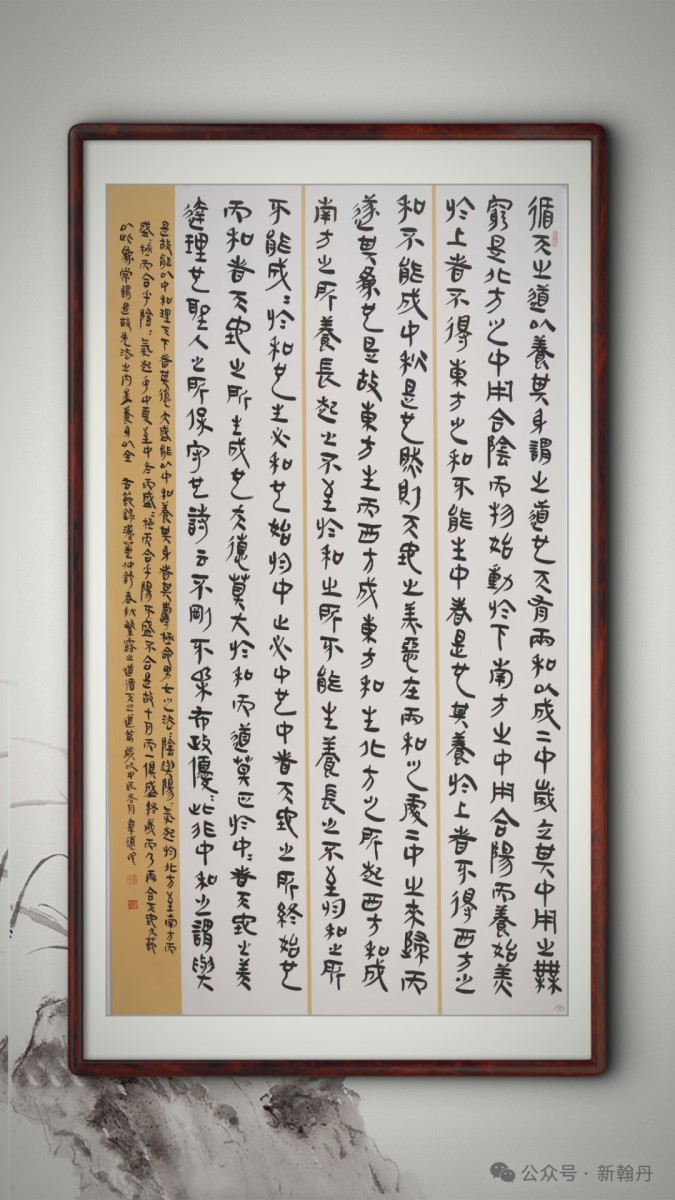 循天之道以養其身謂之道也天有兩和以成二中歲立其中用之無
窮是北方之中用合陰而物始動於下南方之中用合陽而養始美
於上者不得東方之和不能生中春是也其養於上者不得西方之
和不能成中秋是也然則天地之美惡在兩和之處二中之來歸而
遂其為也是故東方生而西方成東方和生北方之所起西方和成
南方之所養長起之不至於和之所不能生養長之不至於和之所
不能成〻於和也生必和也始於中止必中也中者天地之所終始也
而和者天地之所生成也夫德莫大於和而道莫正於中〻者天地之美
達理也聖人之所保守也詩云不剛不柔布政優〻此非中和之謂與
是故能以中和理天下者其德大盛能以中和養其身者其壽極命男女之法〻陰與陽〻氣起於北方至南方而
盛〻極而合乎陰〻氣起乎中夏至中冬而盛〻極而合乎陽不盛不合是故十月而一俱盛終歲而乃再合天地久節
以此為常是故先法之內矣養身以全 右節錄漢董仲舒春秋繁露之循天之道篇歲次甲辰冬月韋
公众号·新翰丹